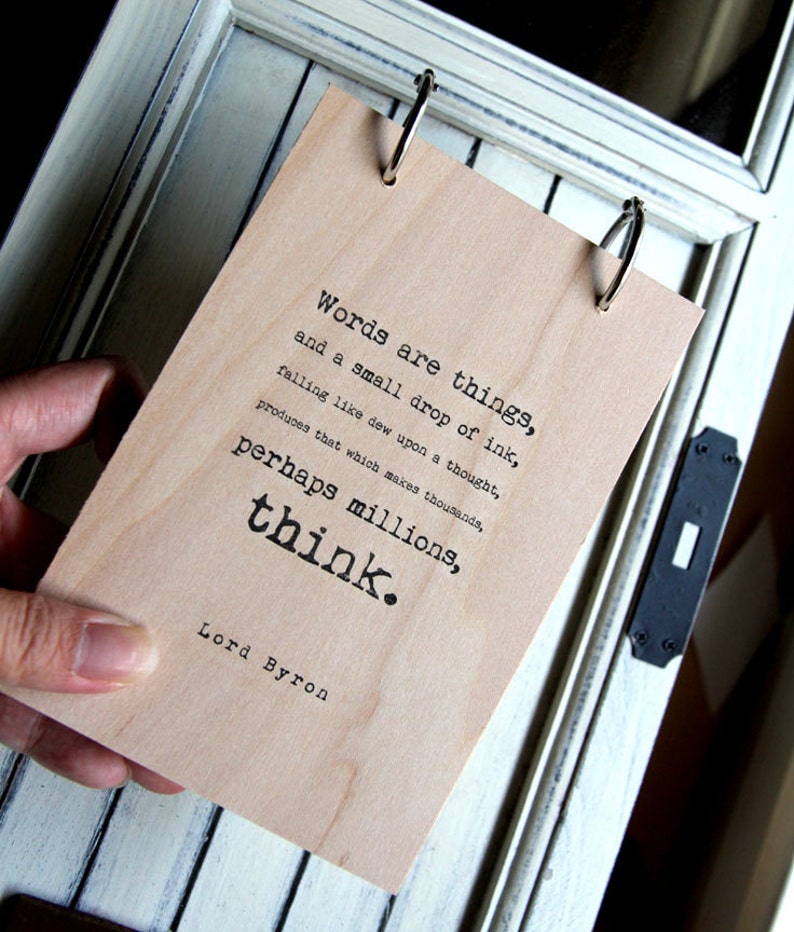 Words are things,
and a small drop of ink,
falling like dew upon a thought,
produces that which makes thousands,
perhaps millions,
think.
Lord Byron